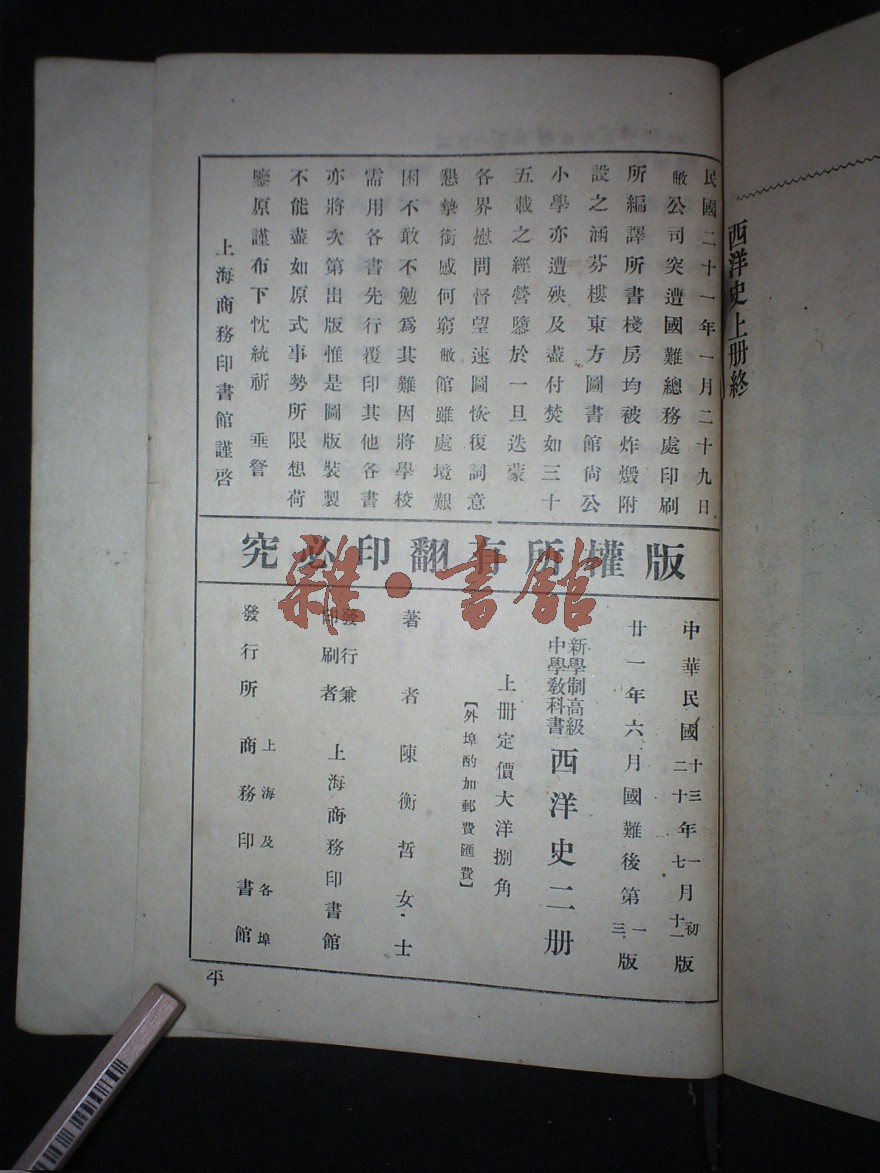 西洋史上册終
民國二十一年一月二十九日
敝公司突遭國難總務處印刷
所編譯所書棧房均被炸燬附
設之涵芬樓東方圖書館尙公
小學亦遭殃及盡付焚如三十
五載之經營隳於一旦迭蒙
各界慰問督望速圖恢復詞意
懇摯銜感何窮敝館雖處境艱
困不敢不勉爲其難因將學校
需用各書先行覆印其他各書
亦將次第出版惟是圖版裝製
不能盡如原式事勢所限想荷
鑒原謹布下忱統祈 垂詧
上海商務印書館謹啓
版權所有翻印必究
中華民國十三年一月初版
二十七十一
廿一年六月國難後第一版
三
新學制高級
中學敎科書
西洋史二册
上册定價大洋捌角
【外埠酌加郵費匯費】
著者 陳衡哲女士
發行兼
印刷者
上海商務印書館
發行所 商務印書館
上海及各埠
雜·書館